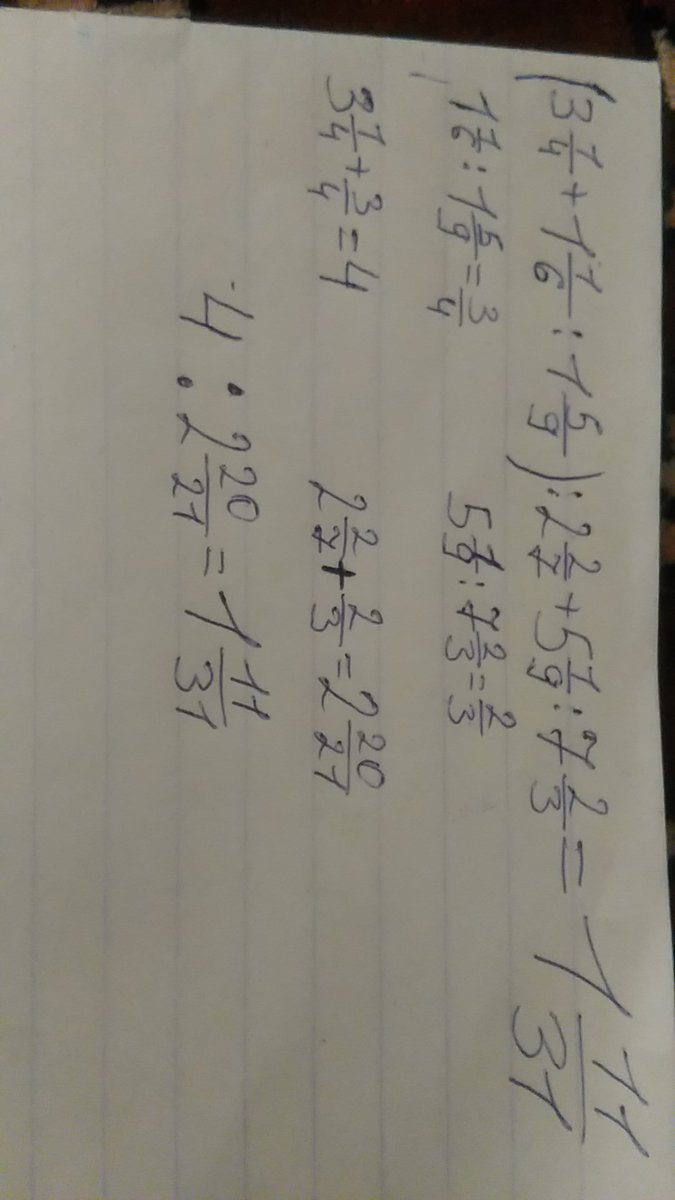 (3 1/4 + 1 1/6 : 1 5/9) : 2 2/7 + 5 1/9 : 7 2/3 = 1 11/31
1 1/6 : 1 5/9 = 3/4 5 1/9 : 7 2/3 = 2/3
3 1/4 + 3/4 = 4 2 2/7 + 2/3 = 2 20/21
4 : 2 20/21 = 1 11/31